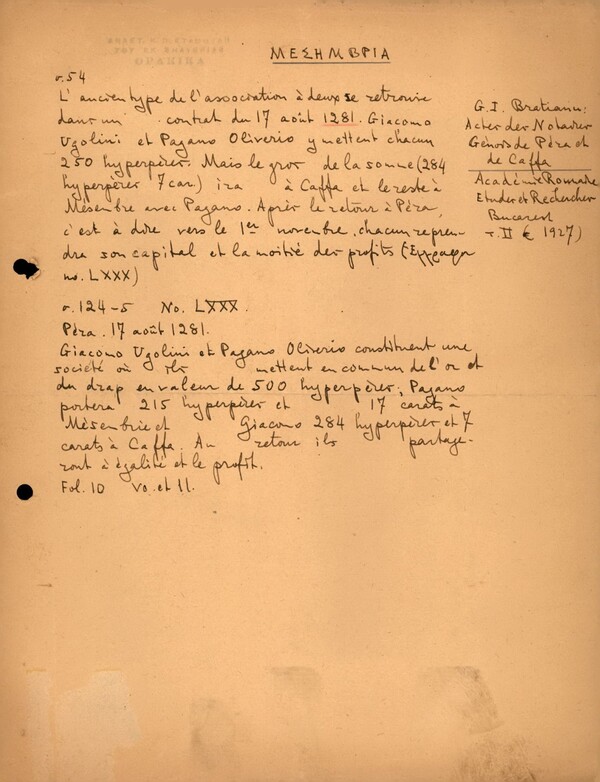 ΜΕΣΗΜΒΡΙΑ
σ.54
L'ancien type de l'association à deux se retrouve
dans un contrat du 17 août 1281. Giacomo
Ugolini et Pagano Oliverio y mettent chacun
250 hyperpères. Mais le gros de la somme (284
hyperpères 7 car.) ira à Caffa et le reste à
Mésembre avec Pagano. Après le retour à Péra,
c'est à dire vers le 1er novembre, chacun repren-
dra son capital et la moitié des profits (Έγγραφον
no. LXXX)
σ. 124-5 No. LXXX.
Péra. 17 août 1281.
Giacomo Ugolini et Pagano Oliverio constituent une
société où ils mettent en commun de l'or et
du drap en valeur de 500 hyperpères; Pagano
portera 215 hyperpères et 17 carats à
Mésembrie et Giacomo 284 hyperpères et 7
carats à Caffa. Au retour ils partage-
ront à égalité et le profit.
Fol. 10 vo. et 11.
G. I. Bratianu:
Actes des Notaires
Génois de Péra et
de Caffa
Académie Roumaine
Etudes et Recherches
Bucarest
τ. II (1927)